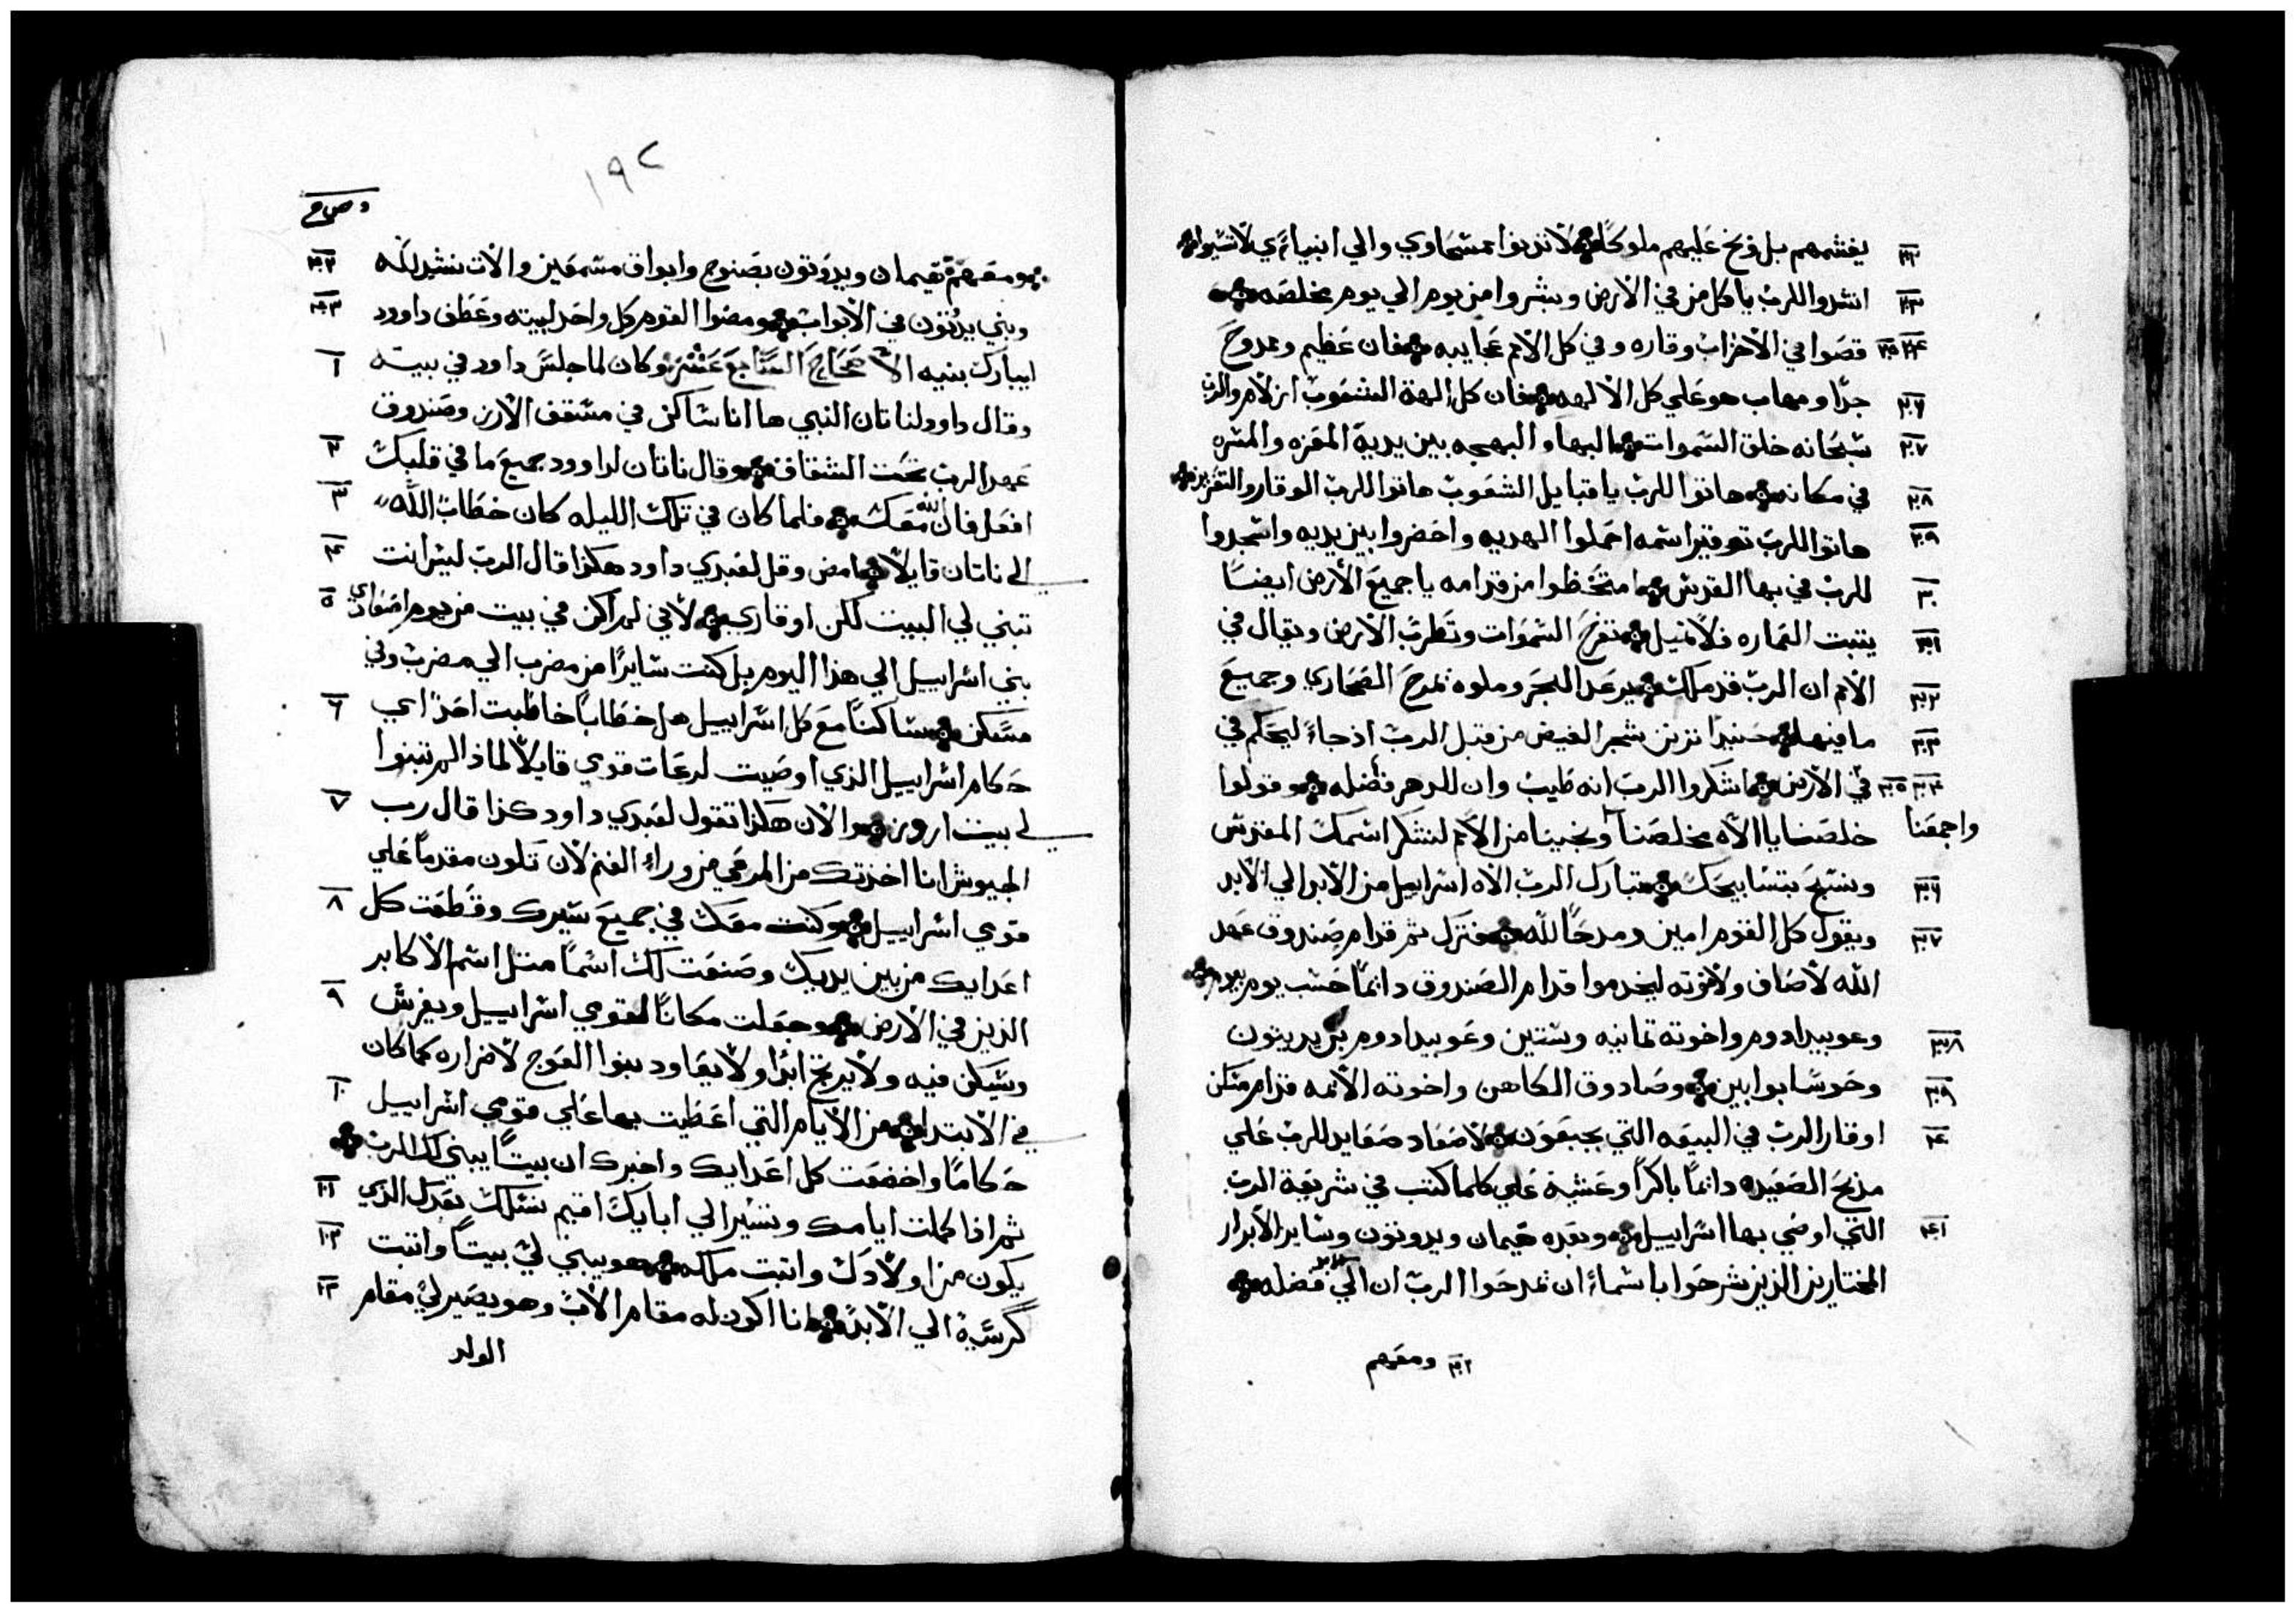 يغشمهم بل وبخ عليهم ملوكا لا تدنوا بمسحاوي والي انبياءي لا تسيوا
انشدوا للرب يا كل من في الارض وبشروا من يوم الي يوم بخلصه
قصوا في الاحزاب وقاره وفي كل الامم عجايبه فان عظيم وممدوح
جدا ومهاب هو علي كل الالهه فان كل الهة الشعوب ازلام والرب
سبحانه خلق السموات البها والبهجه بين يديه المعزه والمسره
في مكانه هاتوا للرب يا قبايل الشعوب هاتوا للرب الوقار والتعزيز
هاتوا للرب توقير اسمه احملوا الهديه واحضروا بين يديه واسجدوا
للرب في بها القدس امتخظوا من قدامه يا جميع الارض ايضا
يتبت العماره فلا تميل تفرح السموات وتطرب الارض ويقال في
الامم ان الرب قد ملك يرعد البحر وملوه تمدح الصحاري وجميع
ما فيها حنيدا ترنن شجر الغيض من قبل الرب اذ جاء ليحكم في
في الارض اشكروا الرب انه طيب وان للدهر فضله وقولوا
خلصنا يا الاه مخلصنا ونجينا من الامم لنشكر اسمك المقدس
واجمعنا
ونسبح بتسابيحك تبارك الرب الاه اسراييل من الابد الي الابد
ويقول كل القوم امين ومدحا لله فترك ثم قدام صندوق عهد
الله لاصاف ولاخوته ليخدموا قدام الصندوق دايما حسب يوم بيوم
وعوبيدادوم واخوته تمانيه وستين وعوبيدادوم بن يديثون
وحوسا بوابين وصادوق الكاهن واخوته الايمه قدام مسكن
اوقار الرب في البيعه التي بجبعون لاصعاد صعايد للرب علي
مذبح الصعيده دايما باكرا وعشية علي كلما كتب في شريعة الرب
التي اوصي بها اسراييل وبعده هيمان ويدوتون وساير الابرار
المختارين الذين شرحوا باسماء ان تمدحوا الرب ان الي الابد فضله
ومعهم
١٩٢
ومعهم هيمان ويدوتون بصنوج وابواق مسمعين والات نشيد لله
وبني يدتون في الابواب ومضوا القوم كل واحد لبيته وعطف داوود
ليبارك بنيه الاصحاح السابع عشر وكان لما جلس داود في بيته
وقال داوود لناتان النبي ها انا ساكن في مسقف الارز وصندوق
عهد الرب تحت الشقاق وقال ناتان لداوود جميع ما في قلبك
افعل فان الله معك فلما كان في تلك الليله كان خطاب الله
الي ناتان قايلا امض وقل لعبدي داود هكذا قال الرب ليس انت
تبني لي البيت لكن اوقاري لاني لم اكن في بيت من يوم اصعادي
بني اسراييل الي هذا اليوم بل كنت سايرا من مضرب الي مضرب وفي
مسكن ساكنا مع كل اسراييل هل خطابا خاطبت احدا اي
حكام اسراييل الذي اوصيت لرعات قومي قايلا لماذا لم تبنوا
لي بيت ارز والان هكذا تقول لعبدي داود كذا قال رب
الجيوش انا اخذتك من المرعي من وراء الغنم لان تكون مقدما علي
قومي اسراييل وكنت معك في جميع سيرك وقطعت كل
اعدايك من بين يديك وصنعت لك اسما متل اسم الاكابر
الذين في الارض وجعلت مكانا لقومي اسراييل ويغرس
ويسكن فيه ولا يرتج ابدا ولا يعاود بنوا العوج لاضراره كما كان
في الابتدا من الايام التي اعطيت بها علي قومي اسراييل
حكاما واخضعت كل اعدايك واخبرك ان بيتا يبني لك الرب
ثم اذا كملت ايامك وتسير الي ابايك اقيم نسلك بعدك الذي
يكون من اولادك واتبت ملكه هو يبني لي بيتا واتبت
كرسية الي الابد انا اكون له مقام الاب وهو يصير لي مقام
الولد